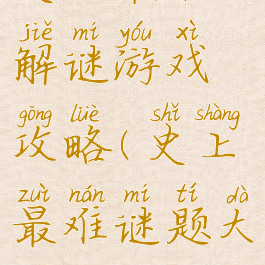 jiě mí yóu xì
解谜游戏
gōng lüè shǐ shàng
攻略(史上
zuì nán mí tí dà
最难谜题大